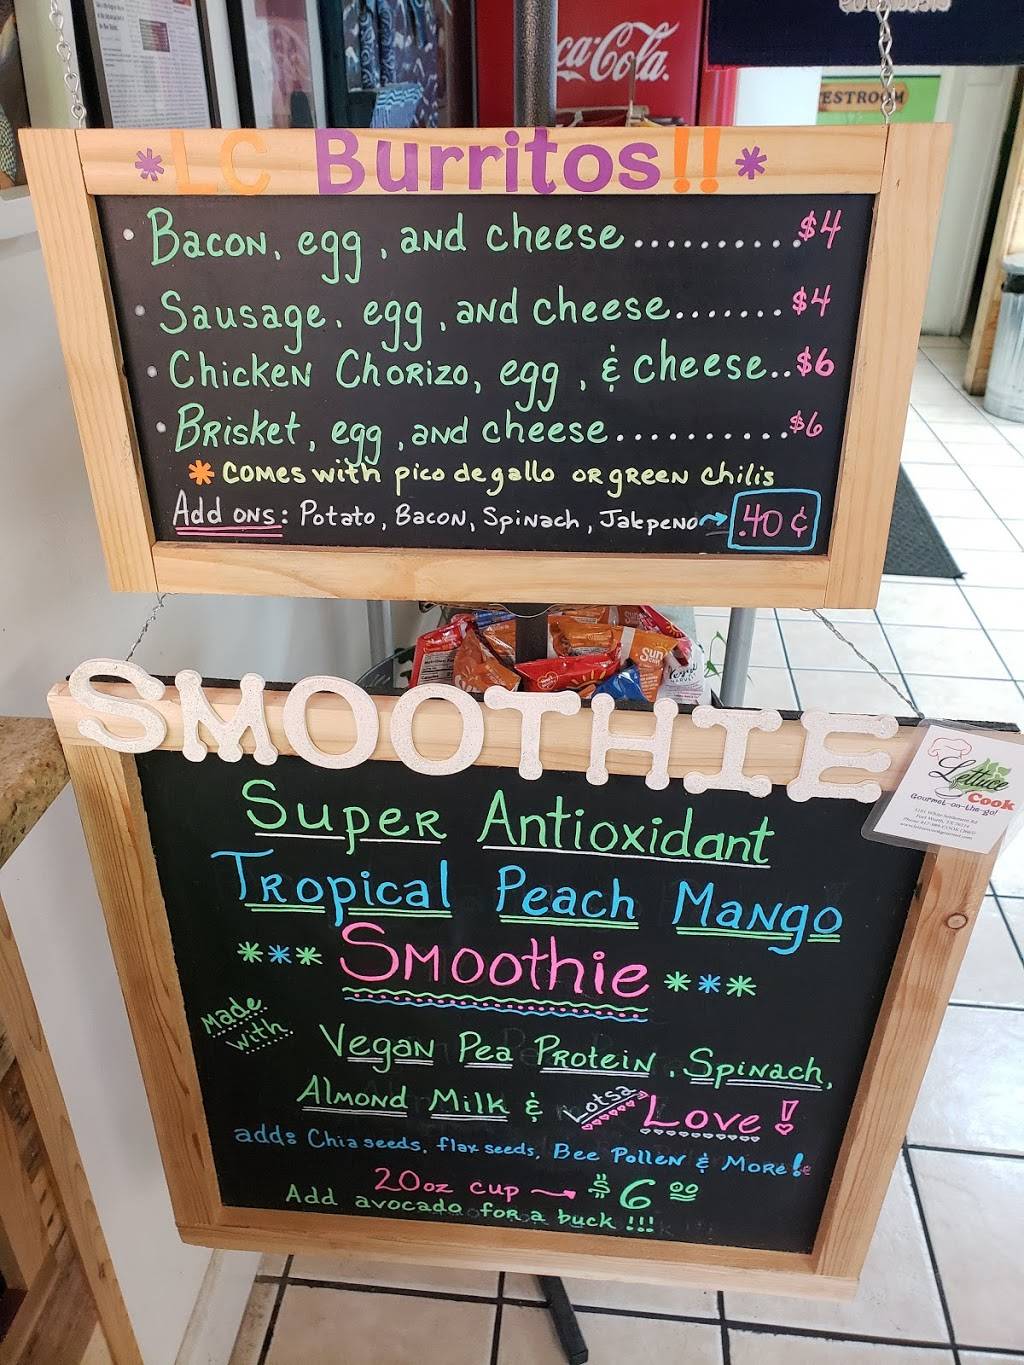 ca-Cola.
ESTROOM
*LC Burritos!!*
• Bacon, egg, and cheese..........$4
• Sausage, egg, and cheese.......$4
• Chicken Chorizo, egg, & cheese..$6
• Brisket, egg, and cheese..........$6
* Comes with pico de gallo or green chilis
Add ons: Potato, Bacon, Spinach, Jalepeno → .40 ¢
Sun
SMOOTHIE
Lettuce
Cook
Gourmet-on-the-go!
Super Antioxidant
Tropical Peach Mango
*** Smoothie ***
Made
with
Vegan Pea Protein, Spinach,
Almond Milk & Lotsa Love!
add: Chia seeds, flax seeds, Bee Pollen & More!
20oz cup → $6.00
Add avocado for a buck!!!